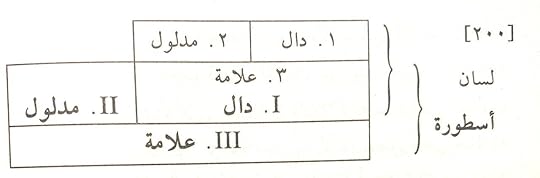 [٢٠٠]
١. دال ٢. مدلول
لسان
٣. علامة
I. دال II. مدلول
أسطورة
III. علامة